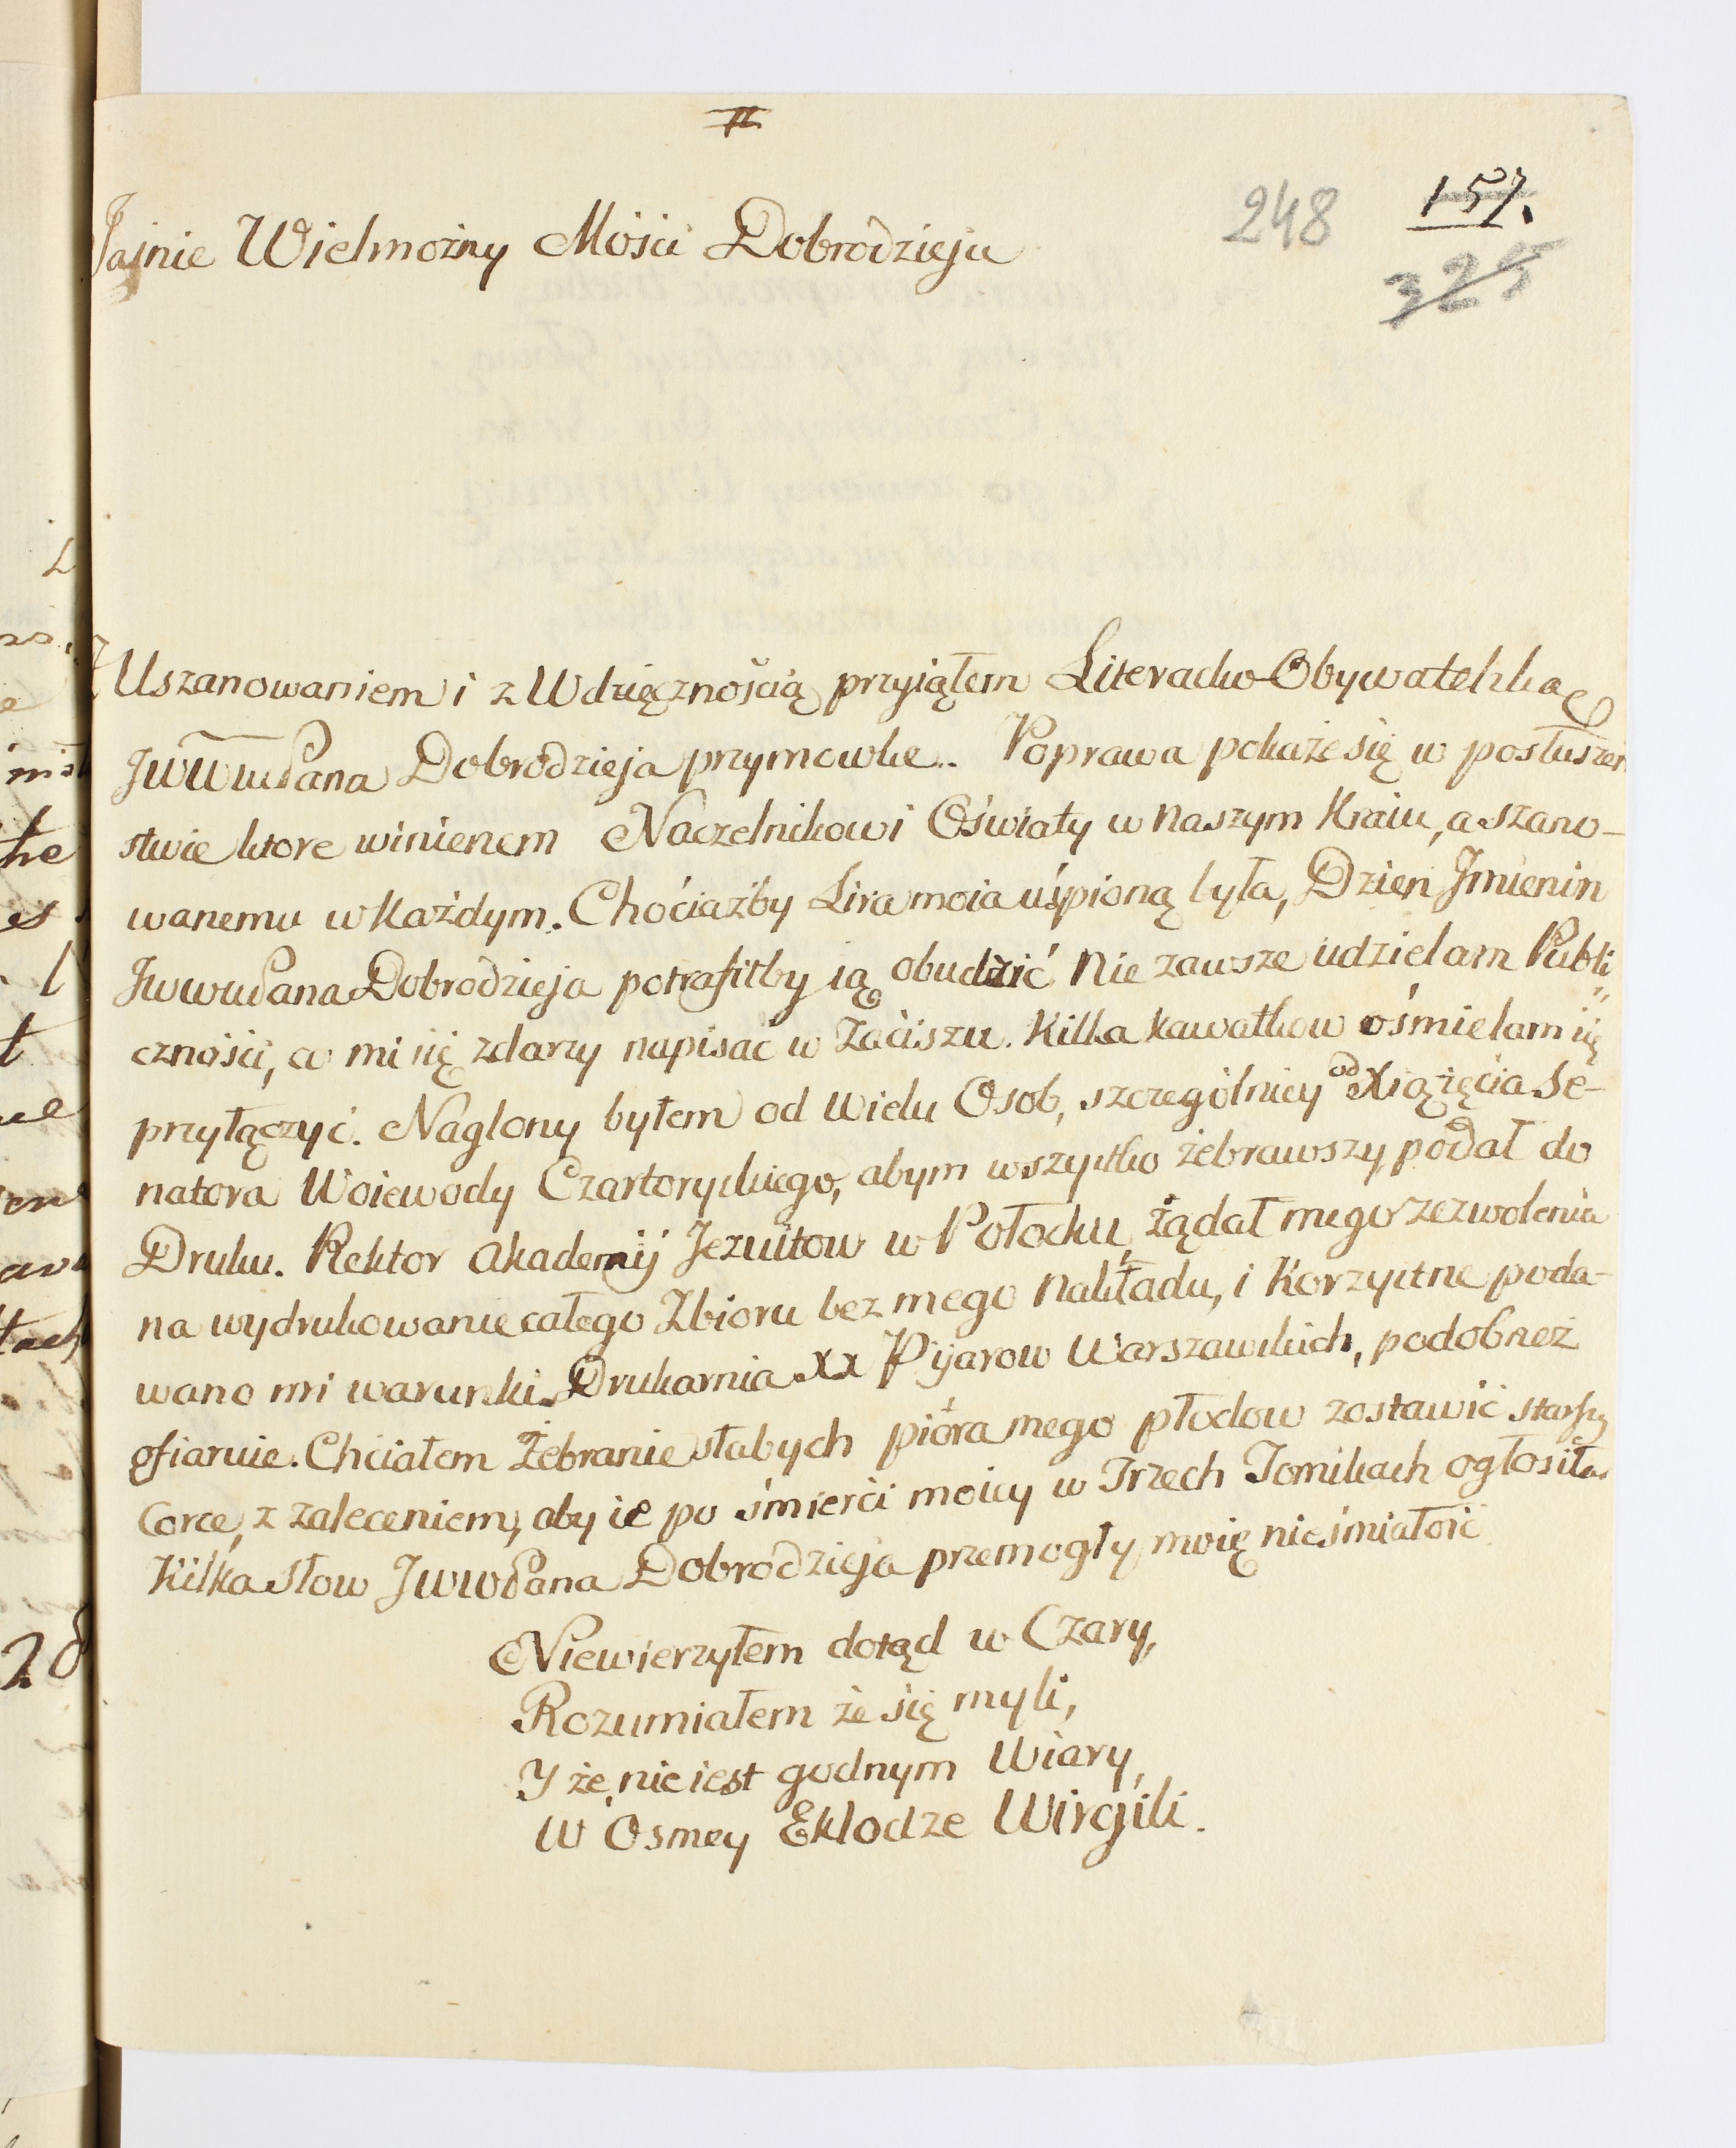 248
157.
325
Jaśnie Wielmożny Mości Dobrodzieju
Z Uszanowaniem i z Wdzięcznością przyiąłem Literacko-Obywatelską
JWWPana Dobrodzieja przymowkę.. Poprawa pokaże się w posłuszeń
stwie ktore winienem Naczelnikowi Oświaty w Naszym Kraiu, a szano-
wanemu w każdym. Chociażby Lira moia uśpioną była, Dzień Jmienin
JWWPana Dobrodzieja potrafiłby ią obudzić Nie zawsze udzielam Publi
czności, co mi się zdarzy napisać w Zaciszu. Kilka kawałkow ośmielam się
przyłączyć. Naglony byłem od Wielu Osob, szczególniey od Xiążęcia Se-
natora Woiewody Czartoryskiego, abym wszystko żebrawszy, podał do
Druku. Rektor Akademij Jezuitow w Połocku, żądał mego zezwolenia
na wydrukowanie całego Zbioru bez mego Nakładu, i Korzystne poda-
wano mi warunki. Drukarnia XX Pijarow Warszawskich, podobneż
ofiaruie. Chciałem Żebranie słabych pióra mego płodow zostawić starszey
Corce, z zaleceniem, aby ie po śmierci moiey w Trzech Tomikach ogłosiła.
Kilka słow JWWPana Dobrodzieja przemogły moię nieśmiałość
Niewierzyłem dotąd w Czary,
Rozumiałem że się myli,
Y że nie iest godnym Wiary,
W Osmey Eklodze Wirgili.